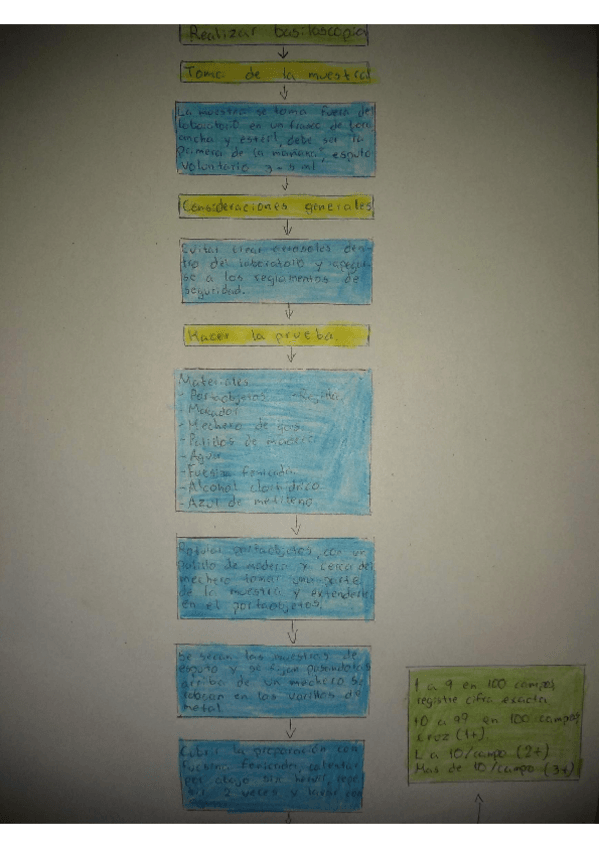 Realizar basiloscopia
Toma de la muestra
La muestra se toma fuera del
laboratorio en un frasco de boca
ancha y esteril, debe ser la
primera de la mañana, esputo
voluntario 3-5 ml
Consideraciones generales
Evitar crear aerosoles den-
tro del laboratorio y apegar-
se a los reglamentos de
seguridad.
Hacer la prueba.
Materiales
- Portaobjetos
- Mechero de gas.
- Palillos de madera
- Agua
- Fucsina fenicada
- Alcohol clorhídrico
- Azul de metileno
Rotular portaobjetos, con un
palillo de madera y cerca del
mechero tomar una parte
de la muestra y extenderla
en el portaobjetos.
Se secan las muestras de
esputo y se fijan pasandolas
arriba de un mechero se
colocan en las varillas de
metal
Cubrir la preparación con
fucsina fenicada, calentar
por abajo sin hervir,
2 veces y lavar con
1 a 9 en 100 campos
registre cifra exacta
10 a 99 en 100 campos
cruz (1+).
1 a 10/campo (2+)
Mas de 10/campo (3+)